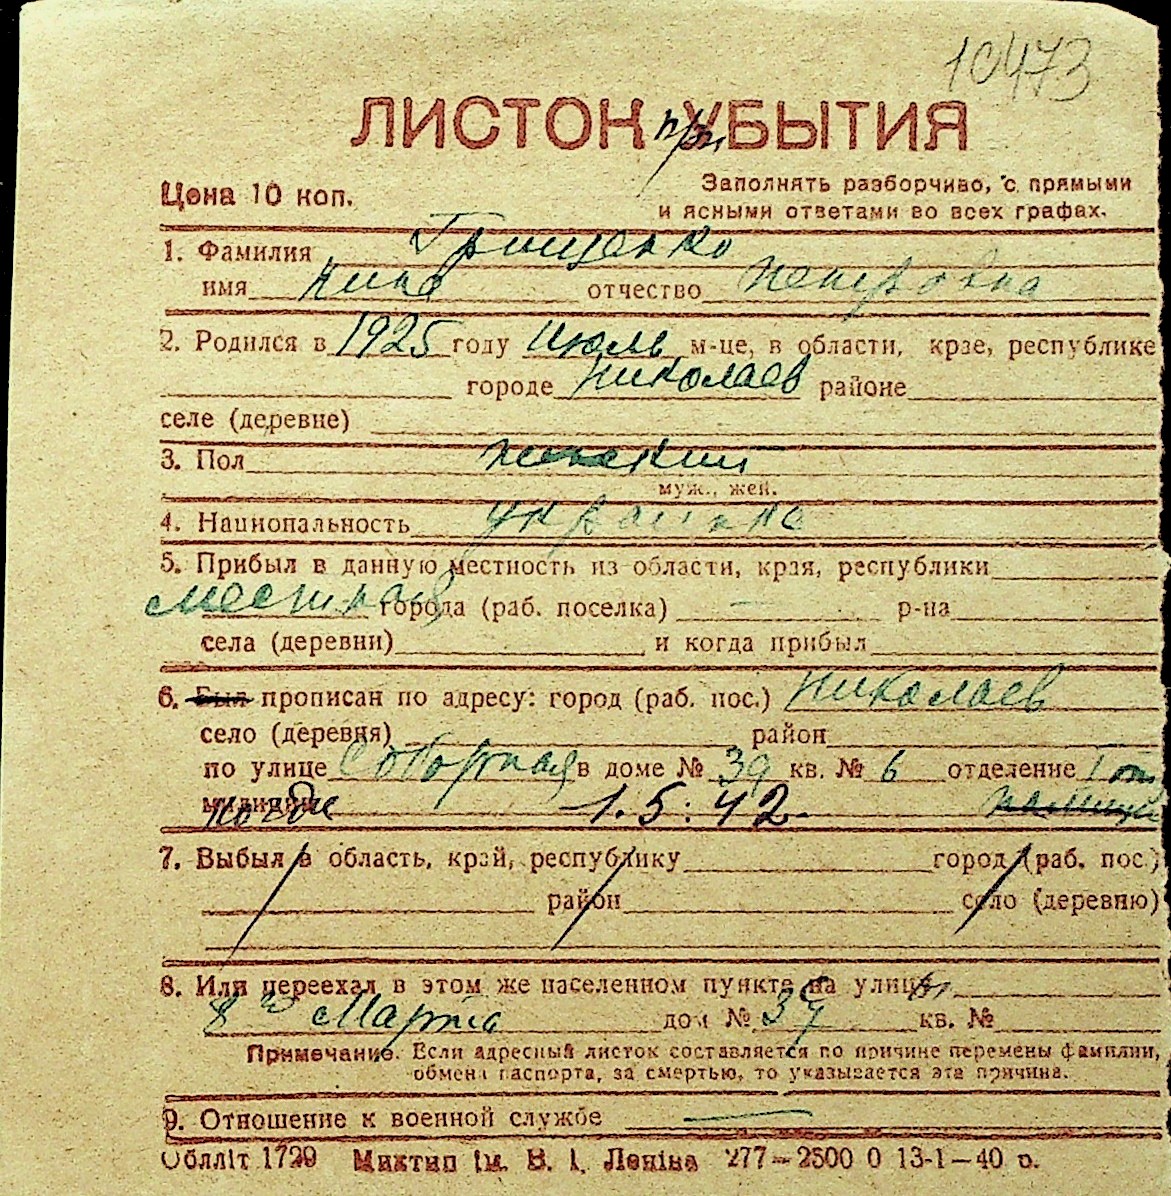 10473
ЛИСТОК УБЫТИЯ
Цена 10 коп.
Заполнять разборчиво, с прямыми
и ясными ответами во всех графах.
1. Фамилия Грищенко
имя Нина отчество Петровна
2. Родился в 1925 году Июль м-це, в области, крае, республике
городе Николаев районе
селе (деревне)
3. Пол женский
муж., жен.
4. Национальность украинка
5. Прибыл в данную местность из области, края, республики
местная города (раб. поселка) — р-на
села (деревни) и когда прибыл
6. Был прописан по адресу: город (раб. пос.) Николаев
село (деревня) район
по улице Соборная в доме № 39 кв. № 6 отделение
милиции 1.5.42
7. Выбыл в область, край, республику город (раб. пос.)
район село (деревню)
8. Или переехал в этом же населенном пункте на улицу
8го Марта дом № 39 кв. №
Примечание. Если адресный листок составляется по причине перемены фамилии,
обмена паспорта, за смертью, то указывается эта причина.
9. Отношение к военной службе —
Облліт 1729 Миктип ім. В. І. Леніна 277—2500 0 13-1—40 р.